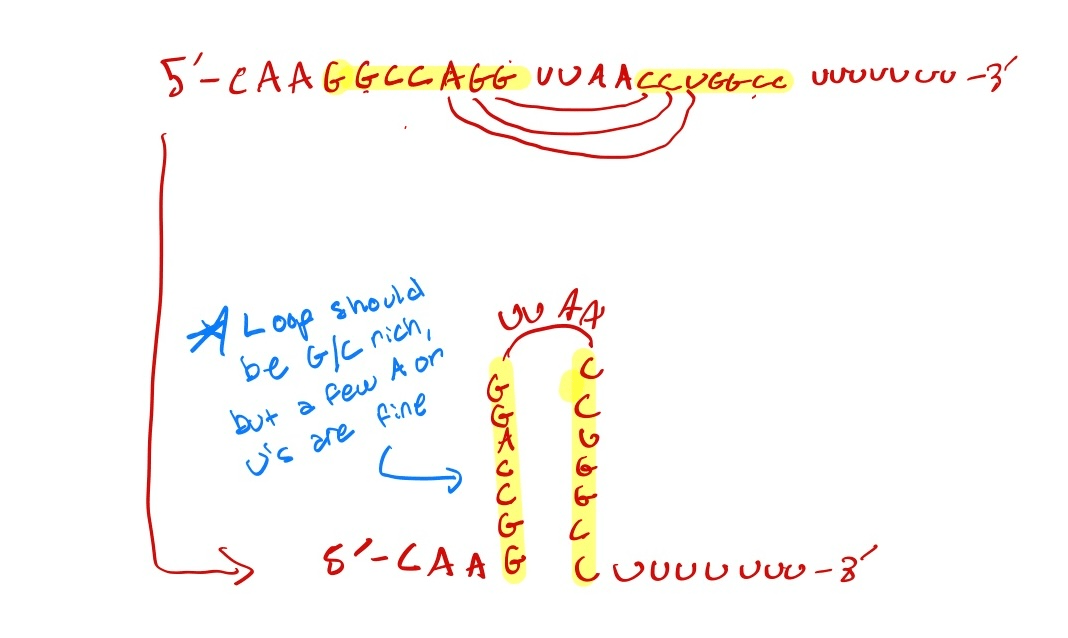 5'-CAAGGCCAGG UUAACCUGGCC UUUUUUU-3'
* A Loop should
be G/C rich,
but a few A or
U's are fine
UU AA
G C
G C
A U
C G
C G
G C
5'-CAAG CUUUUUUU-3'